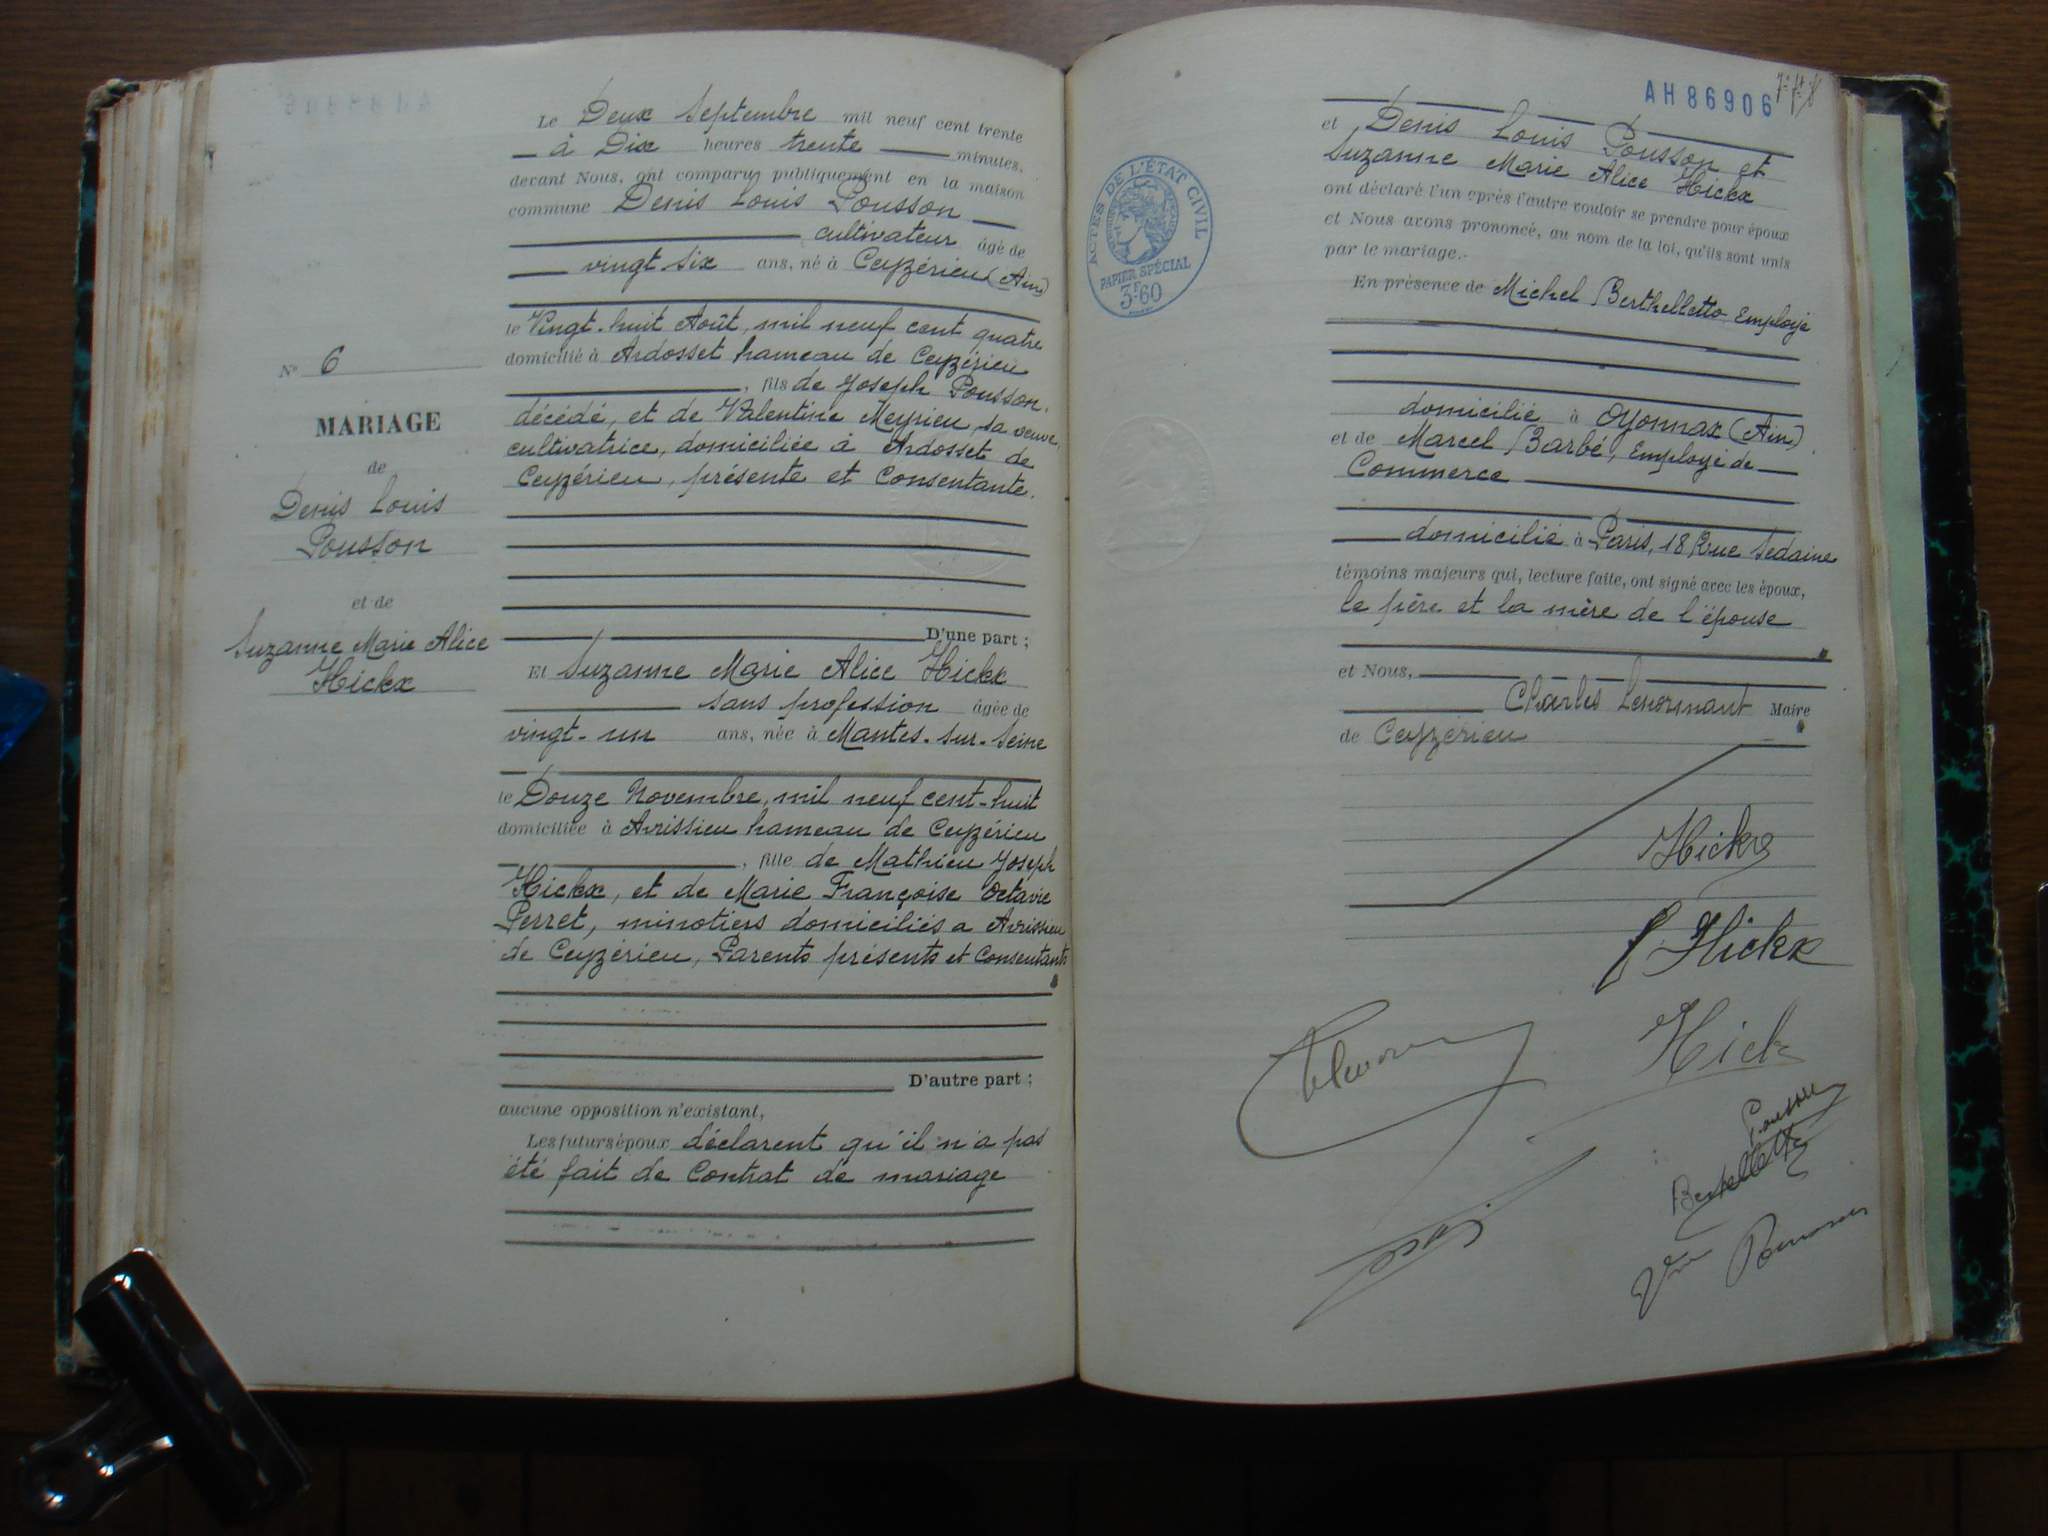 Nº 6
MARIAGE
de
Denis Louis
Pousson
et de
Suzanne Marie Alice
Hickx
Le Deux Septembre mil neuf cent trente
à Dix heures trente minutes,
devant Nous, ont comparu publiquement en la maison
commune Denis Louis Pousson
cultivateur âgé de
vingt six ans, né à Ceyzérieu (Ain)
le Vingt-huit Août, mil neuf cent quatre
domicilié à Ardosset hameau de Ceyzérieu
, fils de Joseph Pousson,
décédé, et de Valentine Meyrieu, sa veuve,
cultivatrice, domiciliée à Ardosset de
Ceyzérieu, présente et Consentante.
D'une part ;
Et Suzanne Marie Alice Hickx
sans profession âgée de
vingt-un ans, née à Mantes-sur-Seine
le Douze Novembre, mil neuf cent-huit
domiciliée à Avrissieu hameau de Ceyzérieu
, fille de Mathieu Joseph
Hickx, et de Marie Françoise Octavie
Perret, minotiers domiciliés a Avrissieu
de Ceyzérieu, Parents présents et Consentants
D'autre part ;
aucune opposition n'existant,
Les futurs époux déclarent qu'il n'a pas
été fait de Contrat de mariage
AH 86906
ACTES DE L'ÉTAT CIVIL
PAPIER SPÉCIAL
3F60
et Denis Louis Pousson et
Suzanne Marie Alice Hickx
ont déclaré l'un après l'autre vouloir se prendre pour époux
et Nous avons prononcé, au nom de la loi, qu'ils sont unis
par le mariage.
En présence de Michel Berthelletto Employé
domicilié à Oyonnax (Ain)
et de Marcel Barbé, Employé de
Commerce
domicilié à Paris, 18 Rue Sedaine
témoins majeurs qui, lecture faite, ont signé avec les époux,
le père et la mère de l'épouse
et Nous,
Charles Lenormant Maire
de Ceyzérieu
Hickx
Hickx
Hick
Pousson
Berthelletto
Vve Pousson